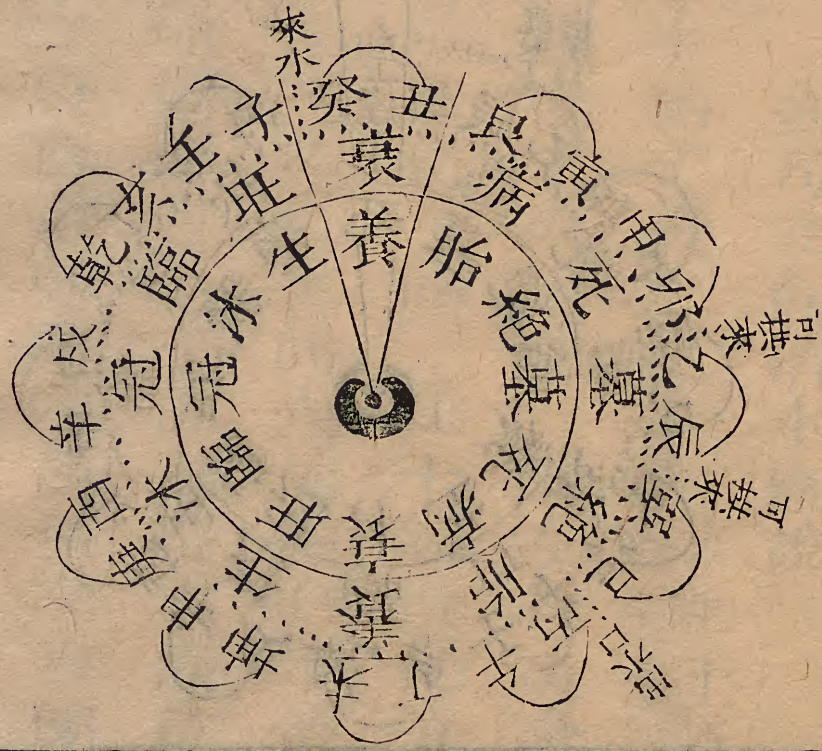 來水
癸丑
艮寅
甲卯
乙辰
巽巳
丙午
丁未
坤申
庚酉
辛戌
乾亥
壬子
衰
病
死
墓
絕
胎
養
生
沐
冠
臨
旺
養
胎
絕
墓
死
病
衰
旺
臨
冠
沐
生
可拱來
可拱來